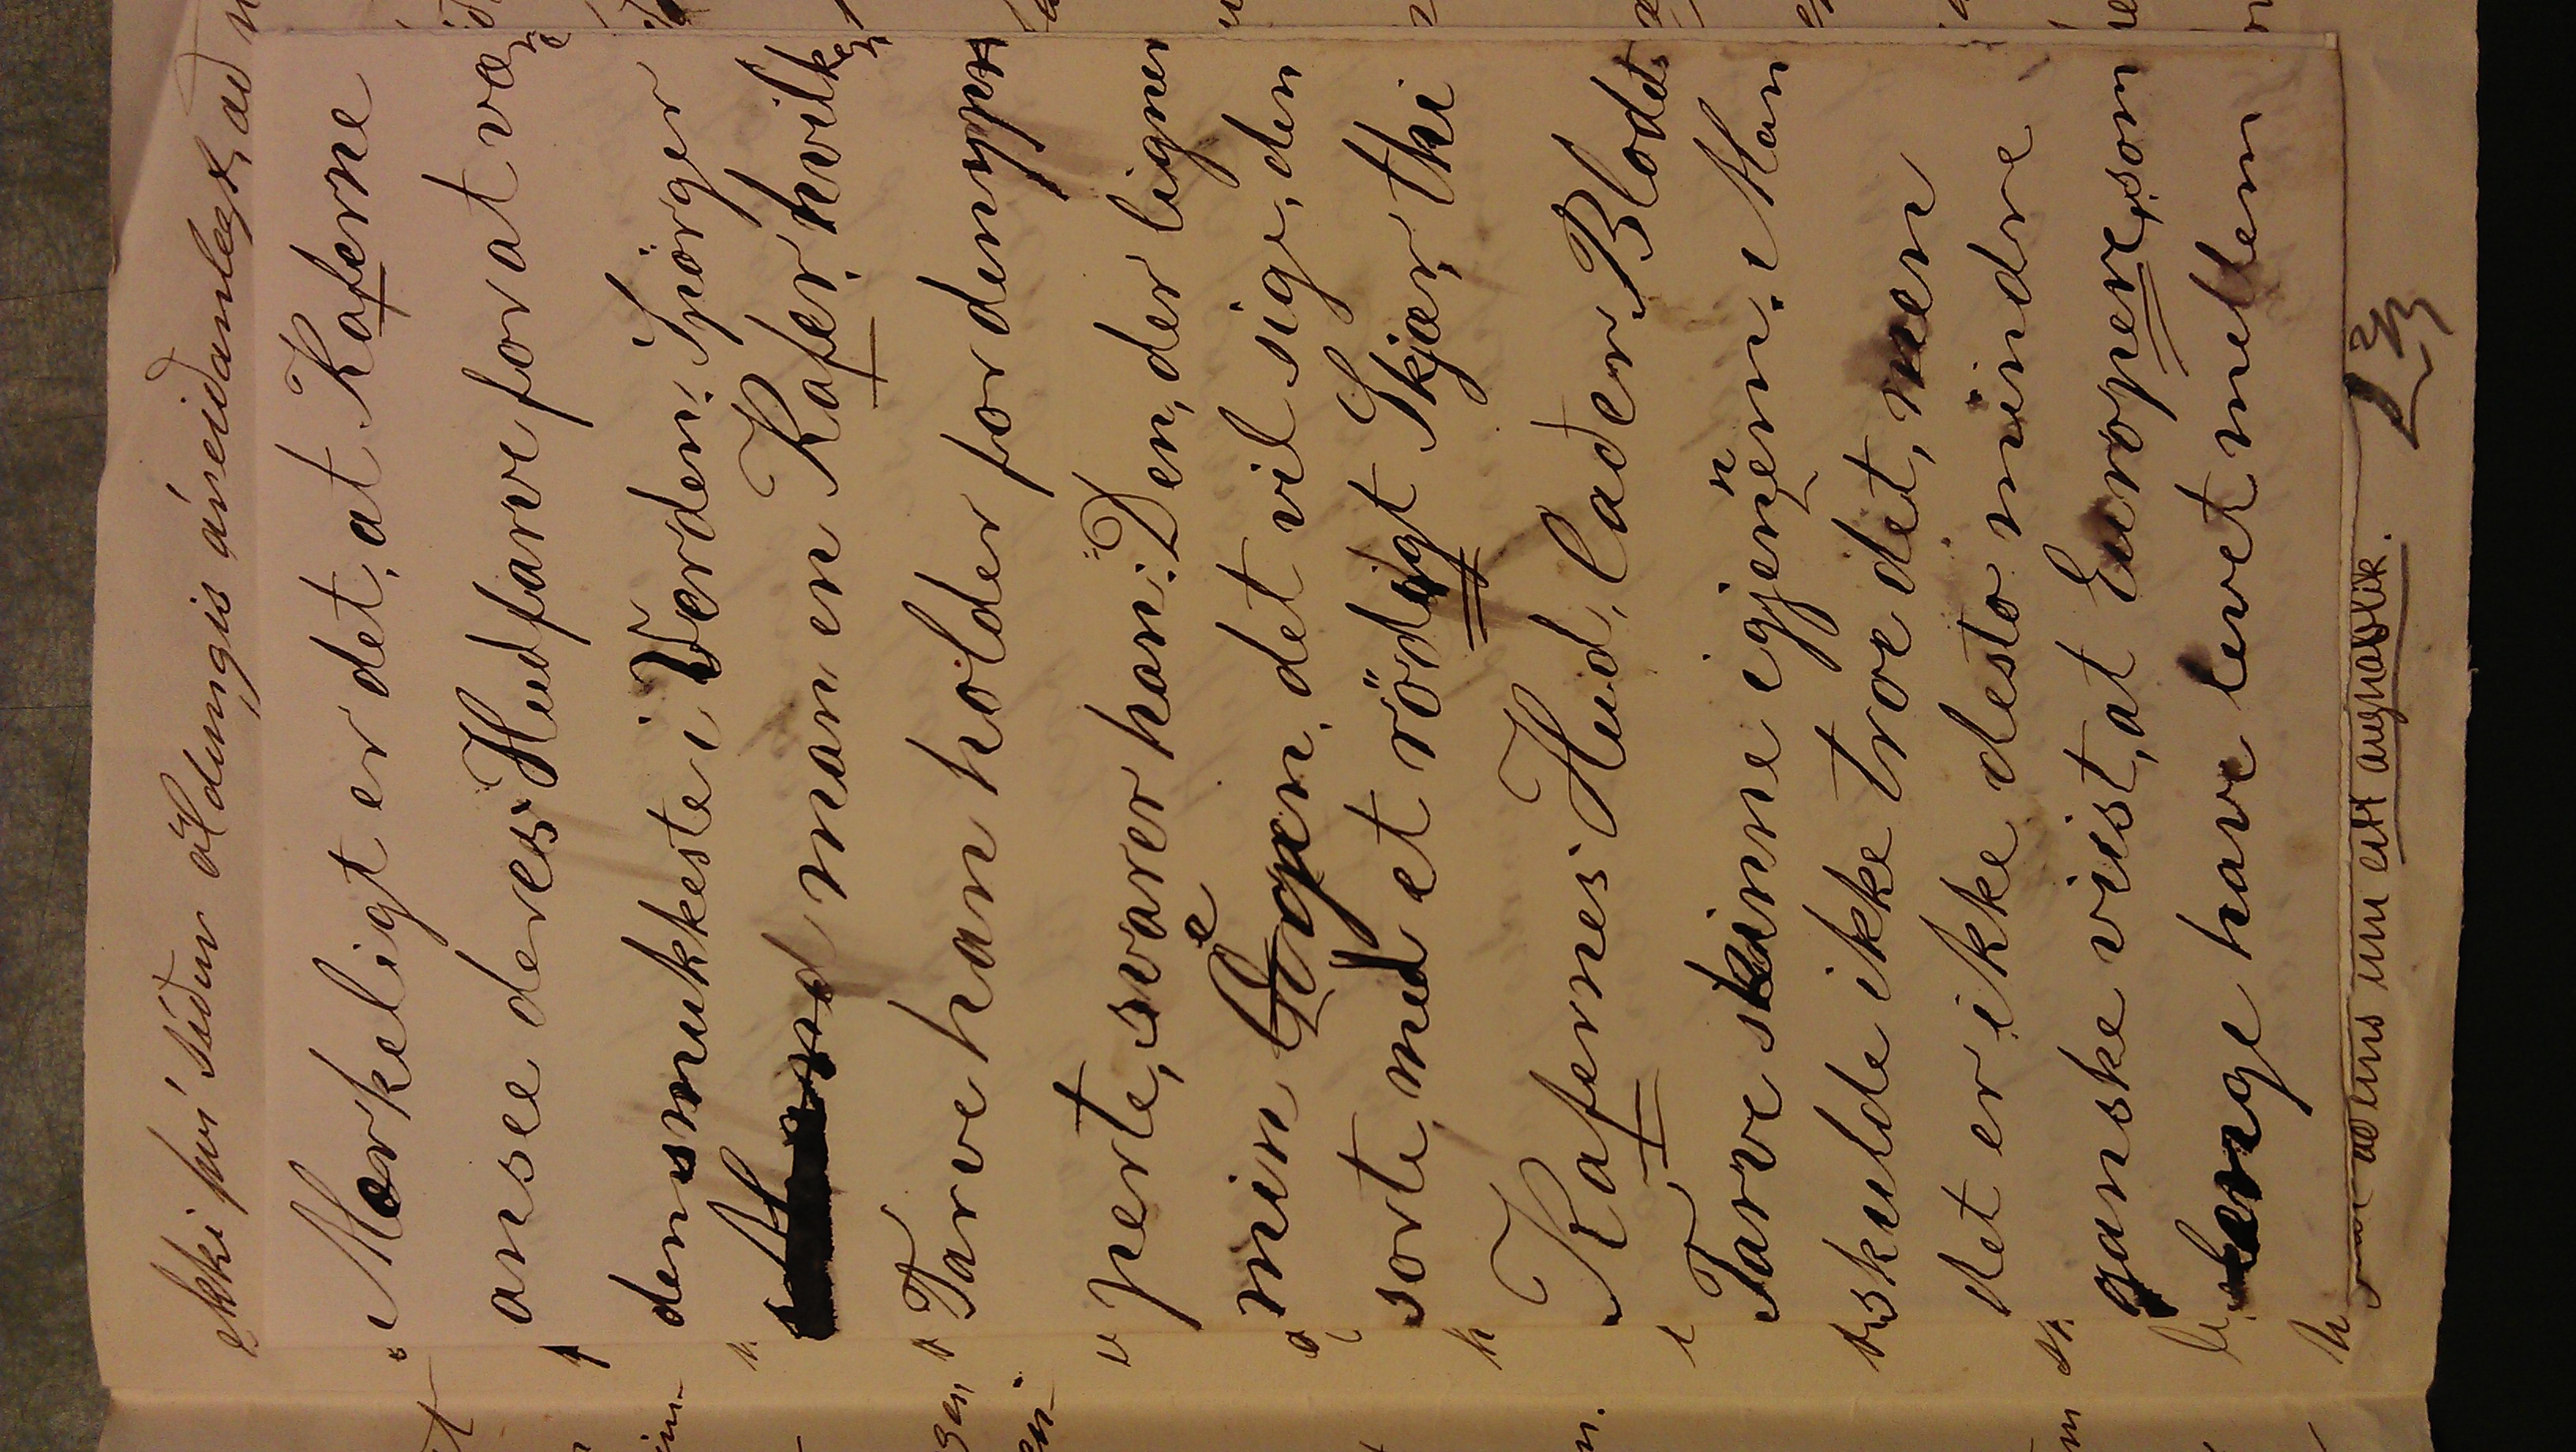 ekki því síður öldungis áreiðanlegt, að
Mærkeligt er det, at Kaferne
ansee deres Hudfarve for at være
den smukkeste i Verden. Spörger
man en Kafer, hvilken
Farve han holder for den yppen
perte, svarer han: Den, der ligner
min Egen, det vil sige, den
sorte med et rödligt Skjær, thi
Kafernes Hud lader Blodets
Farve skinne igjennem. Man
skulde ikke troe det, men
det er ikke desto mindre
ganske vist, at Europere, som
længe have levet mellem
eins um eitt augnablik.